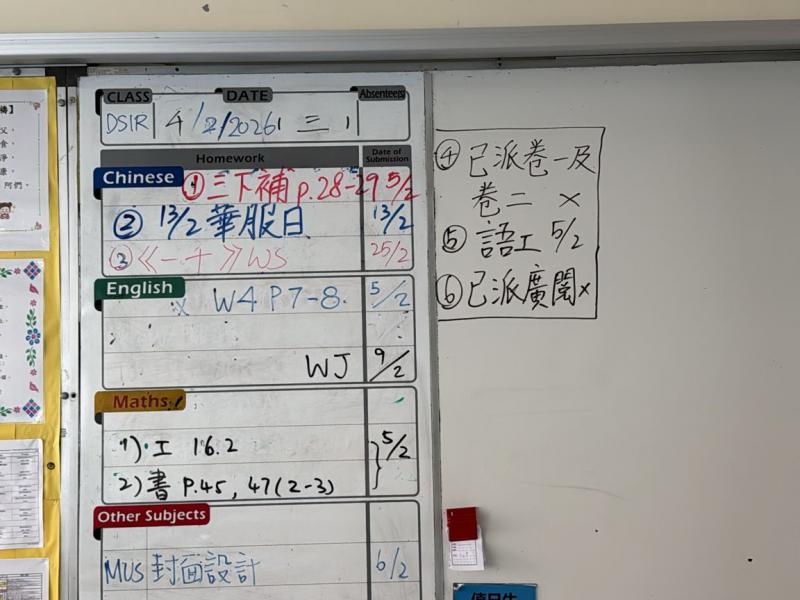 CLASS DATE Absentees
4/2/2026 三 1
Homework Date of Submission
Chinese ①三下補 p.28-29 5/2
② 13/2 華服日 13/2
③《一十》WS 25/2
English
W4 P7-8. 5/2
WJ 9/2
Maths
1) 工 16.2 5/2
2) 書 P.45, 47(2-3)
Other Subjects
MUS 封面設計 6/2
④ 已派卷一及
卷二 ×
⑤ 語工 5/2
⑥ 已派廣閱×
值日生